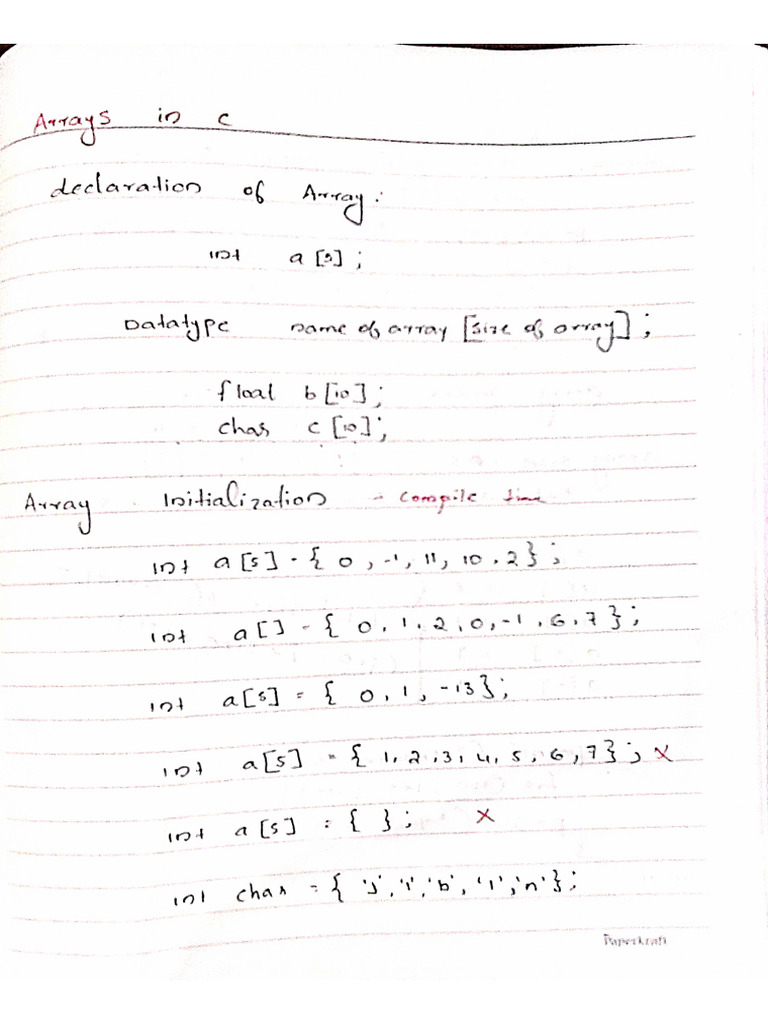 Arrays in c
declaration of Array:
int a[5];
Datatype name of array [size of array];
float b[10];
char c[10];
Array Initialization - compile time
int a[5] = { 0, -1, 11, 10, 2 };
int a[] = { 0, 1, 2, 0, -1, 6, 7 };
int a[5] = { 0, 1, -13};
int a[5] = { 1, 2, 3, 4, 5, 6, 7}; X
int a[5] = { }; X
int char = { 'J', 'i', 'b', 'i', 'n' };
Paperkraft